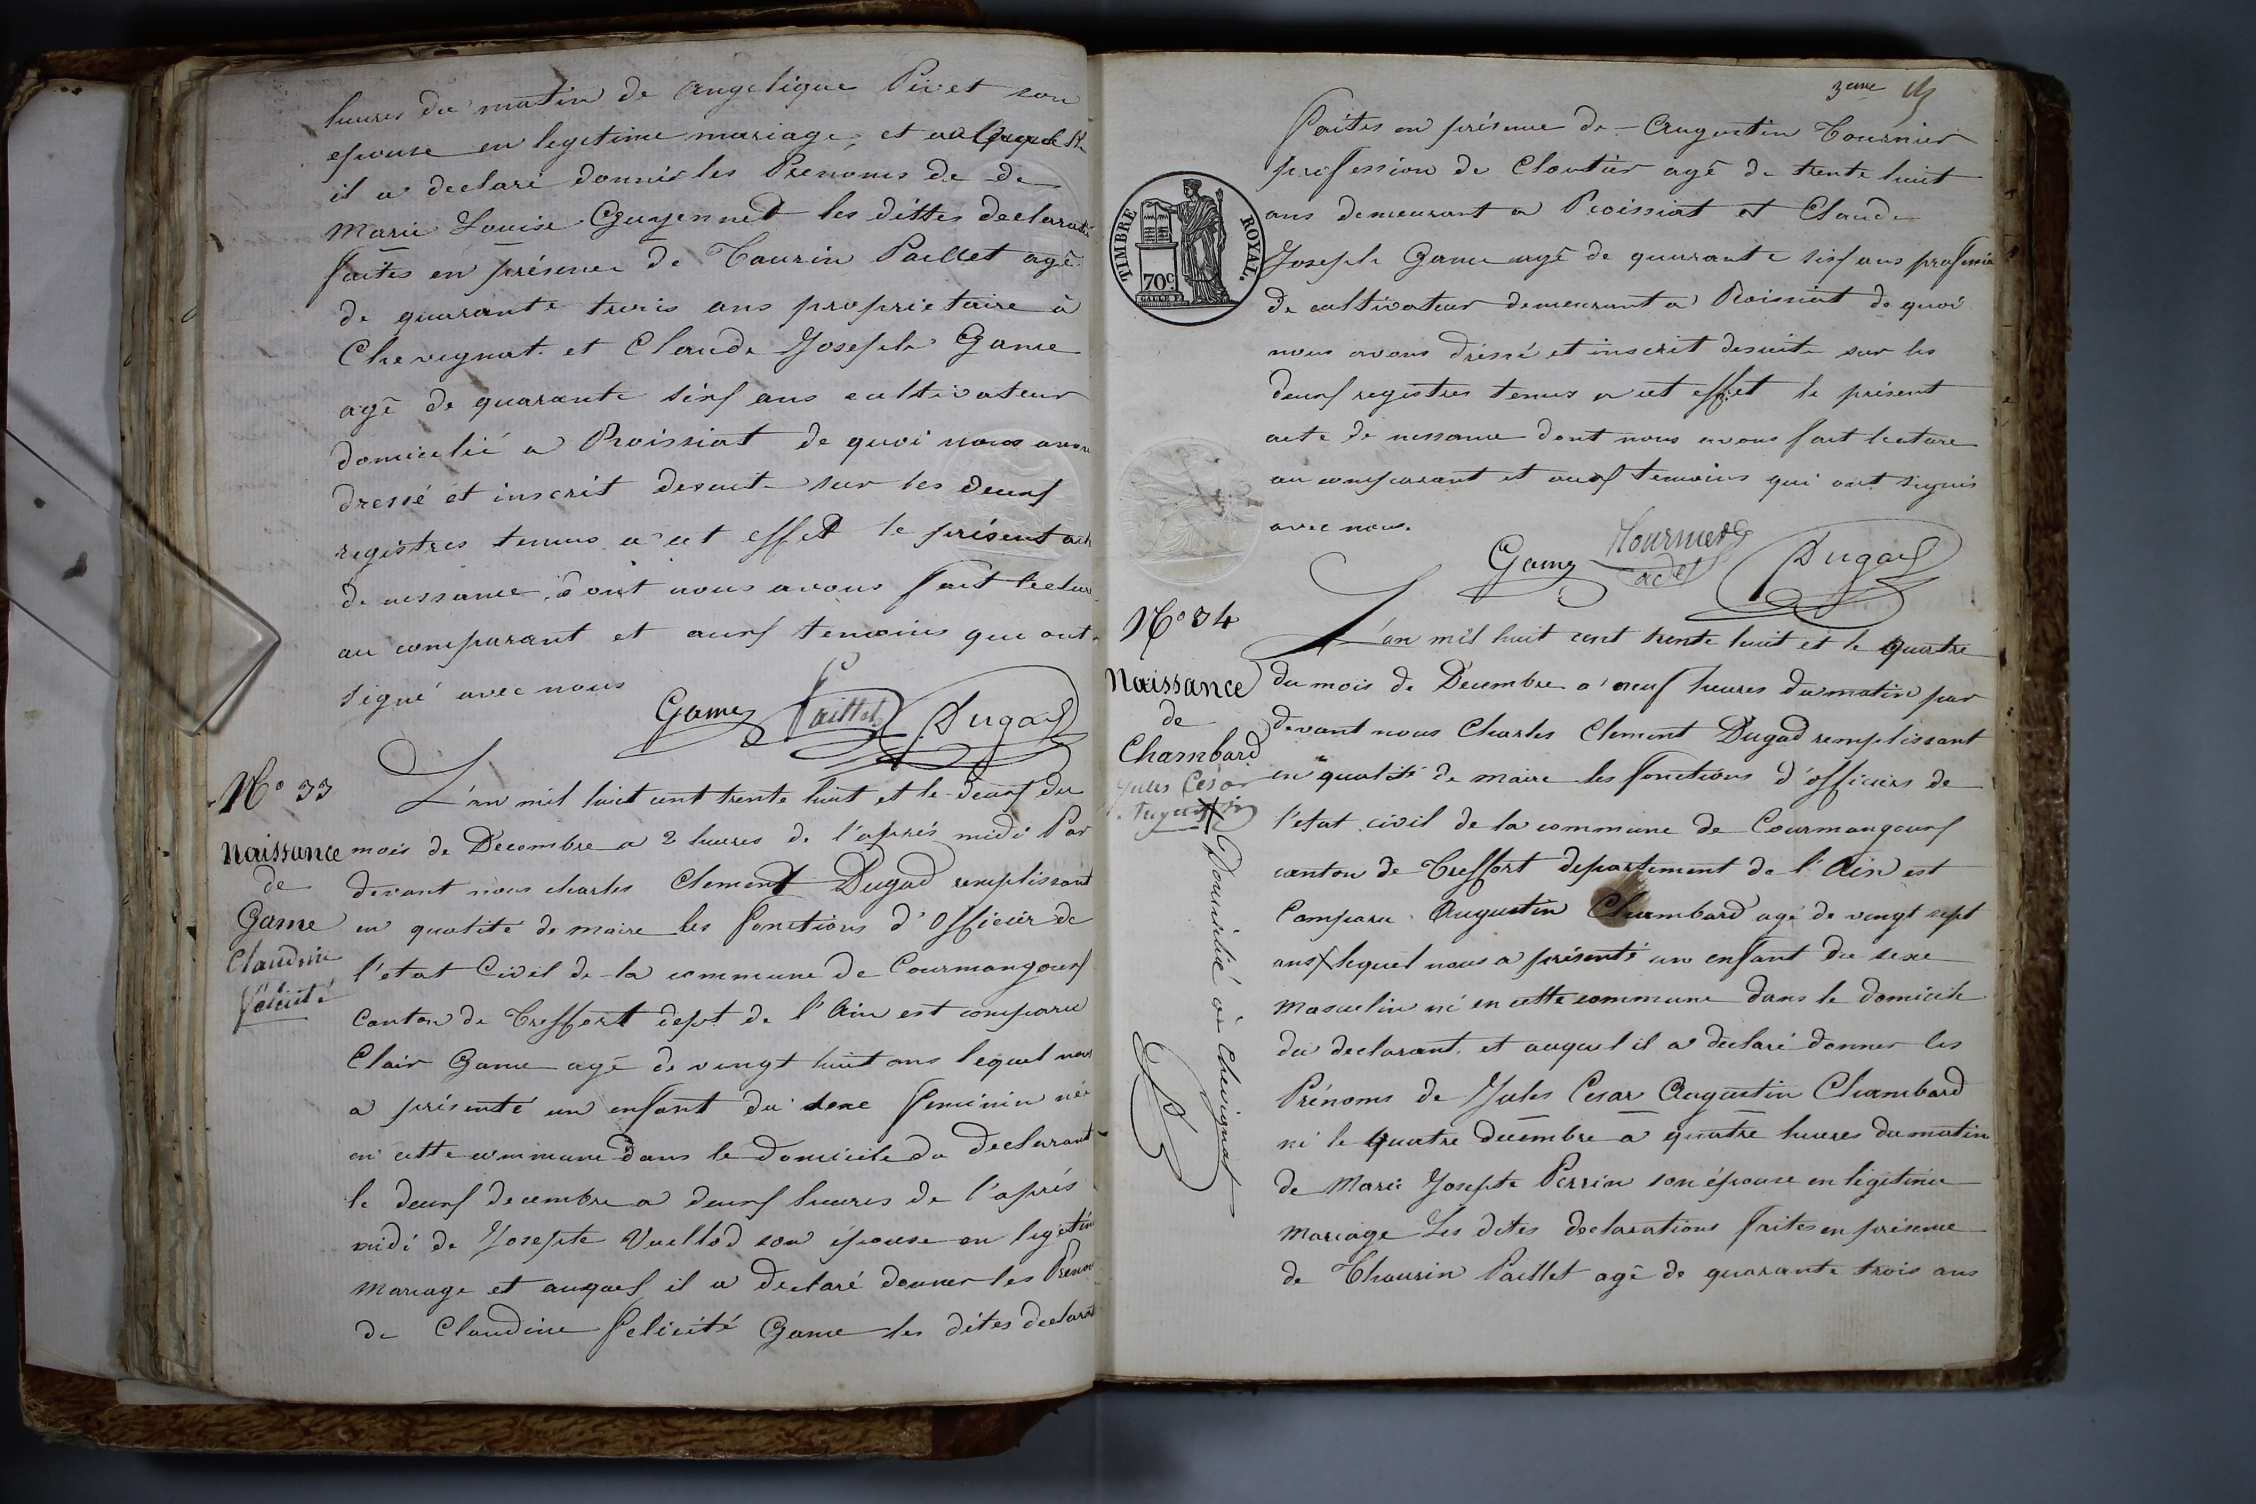 heures du matin de Angelique Pivet son
epouse en legitime mariage, et auquel
il a declaré donner les Prenoms de de
Marie Louise Guyennet les dittes declarati
faites en présence de Taurin Paillet agé
de quarante trois ans proprietaire à
Chevignat et Claude Joseph Game
agé de quarante six ans cultivateur
domicilié a Roissiat de quoi nous avons
dressé et inscrit desuite sur les deux
registres tenus a cet effet le présent acte
de nessance dont nous avons fait lecture
au comparant et aux temoins qui ont
signé avec nous
Game Paillet Dugad
N° 33
Naissance
de
Game
Claudine
Félicité
L'an mil huit cent trente huit et le deux du
mois de Decembre a 2 heures de l'aprés midi Par
devant nous charles Clement Dugad remplissant
en qualité de maire les fonctions d'Officier de
l'etat Civil de la commune de Courmangoux
Canton de Treffort dept de l'Ain est comparu
Clair Game agé de vingt huit ans lequel nous
a présenté un enfant du sexe feminin née
en cette commune dans le domicile du declarant
le deux decembre a deux heures de l'aprés
midi de Josephte Vuillod son épouse en legitime
mariage et auquel il a declaré donner les Prenom
de Claudine Félicité Game les dites declarati
3eme
Faites en présence de Augustin Tournier
profession de Cloutier agé de trente huit
ans demeurant a Roissiat et Claude
Joseph Game agé de quarante six ans profession
de cultivateur demeurant a Roissiat de quoi
nous avons dressé et inscrit desuite sur les
deux registres tenus a cet effet le présent
acte de nessance dont nous avons fait lecture
au comparant et aux temoins qui ont signés
avec nous.
Game Tournier Dugad
TIMBRE ROYAL.
70c
N° 34
Naissance
de
Chambard
Jules César
Augustin
L'an mil huit cent trente huit et le quatre
du mois de Decembre a neuf heures du matin par
devant nous Charles Clement Dugad remplissant
en qualité de maire les fonctions d'officiers de
l'etat civil de la commune de Courmangoux
canton de Treffort departement de l'Ain est
Comparu Augustin Chambard agé de vingt sept
ans X lequel nous a présenté un enfant du sexe
masculin né en cette commune dans le domicile
du declarant et auquel il a déclaré donner les
Prénoms de Jules Cesar Augustin Chambard
né le quatre decembre a quatre heures du matin
de Marie Josephte Perrin son épouse en légitime
mariage Les dites declarations faites en présence
de Thaurin Paillet agé de quarante trois ans
X Domicilié à Chevignat